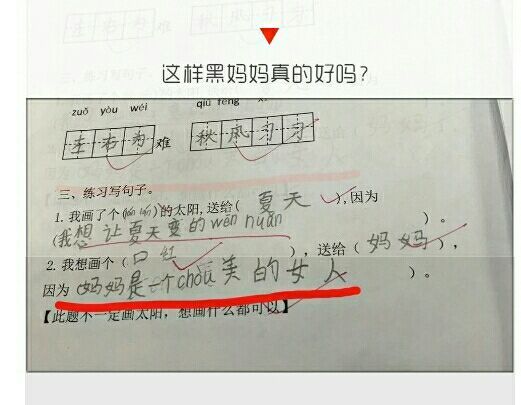 这样黑妈妈真的好吗？
zuǒ yòu wéi qiū fēng
左右为难 秋风习习
三、练习写句子。
1. 我画了个( )的太阳,送给( 夏天 ),因为
(我想让夏天变的wēn nuǎn )。
2. 我想画个( 口红 )，送给( 妈妈 )，
因为 妈妈是一个chǒu美的女人 )。
【此题不一定画太阳，想画什么都可以】